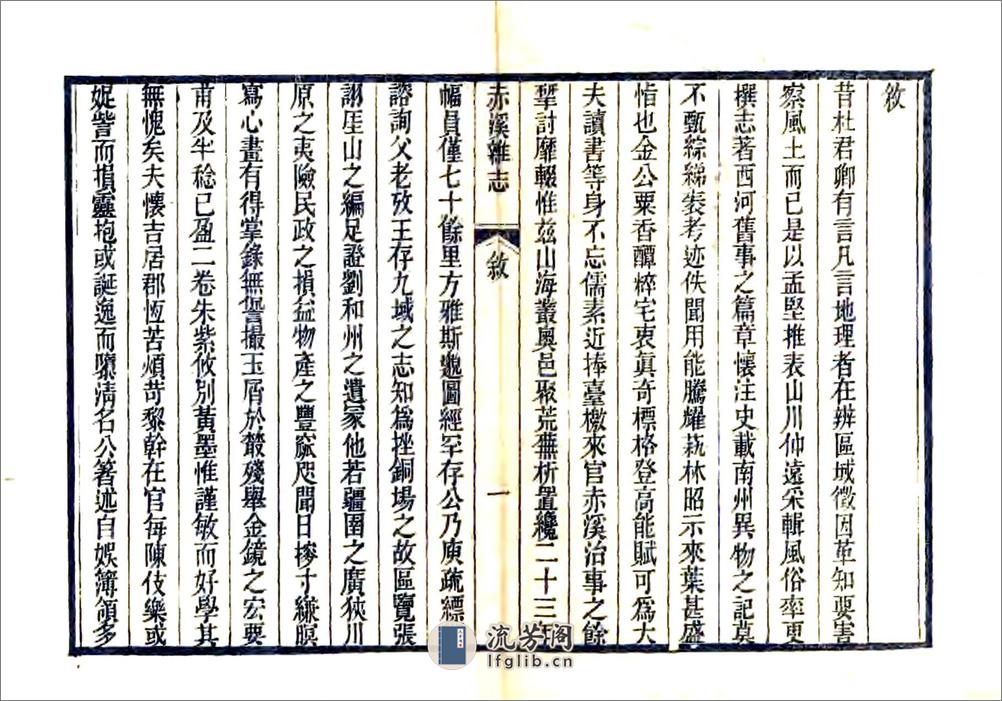 敘
昔杜君卿有言凡言地理者在辨區域徵因革知要害
察風土而已是以孟堅推表山川仲遠采輯風俗率更
撰志著西河舊事之篇章懷注史載南州異物之記莫
不甄綜緗袠考迹佚聞用能騰耀蓺林昭示來葉甚盛
恉也金公粟香醰粹宅衷眞奇標格登高能賦可爲大
夫讀書等身不忘儒素近捧臺檄來官赤溪治事之餘
揅討靡輟惟兹山海叢奧邑聚荒蕪析置纔二十三
赤溪雜志
敘
一
幅員僅七十餘里方雅斯尟圖經罕存公乃庾疏縹
諮詢父老攷王存九域之志知爲挫銅場之故區覽張
詡厓山之編足證劉和州之遺冢他若疆圉之廣狹川
原之夷險民政之損益物產之豐窳咫聞日摻寸縑瞑
寫心畫有得掌錄無訾撮玉屑於叢殘舉金鏡之宏要
甫及半稔已盈二卷朱紫攸別黃墨惟謹敏而好學其
無愧矣夫懷吉居郡恆苦煩苛黎幹在官每陳伎樂或
娖訾而損靈抱或誕逸而隳淸名公箸述自娛簿領多
流芳阁
lfglib.cn